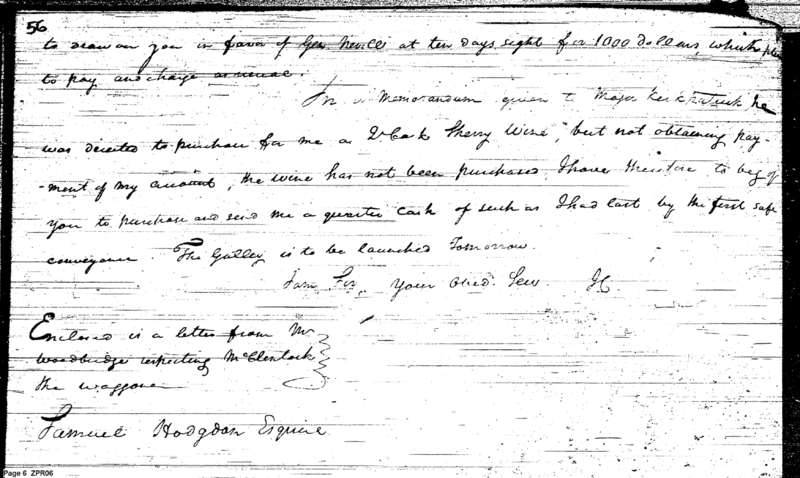 56
to draw on you in favor of Gen Nevill at ten days sight for 1000 dollars, which
to pay and charge as usual.
In a memorandum given to Major Kirkpatrick he
was directed to purchase for me a Qr Cask Sherry Wine, but not obtaining pay-
-ment of my account, the wine has not been purchased. I have therefore to beg of
you to purchase and send me a quarter cask of such as I had last by the first safe
conveyance. The Galley is to be launched Tomorrow.
I am Sir, Your Obed. Serv. IC
Enclosed is a letter from Mr
Woodbridge respecting McClentock
the waggoner
Samuel Hodgdon Esquire
Page 6 ZPR06